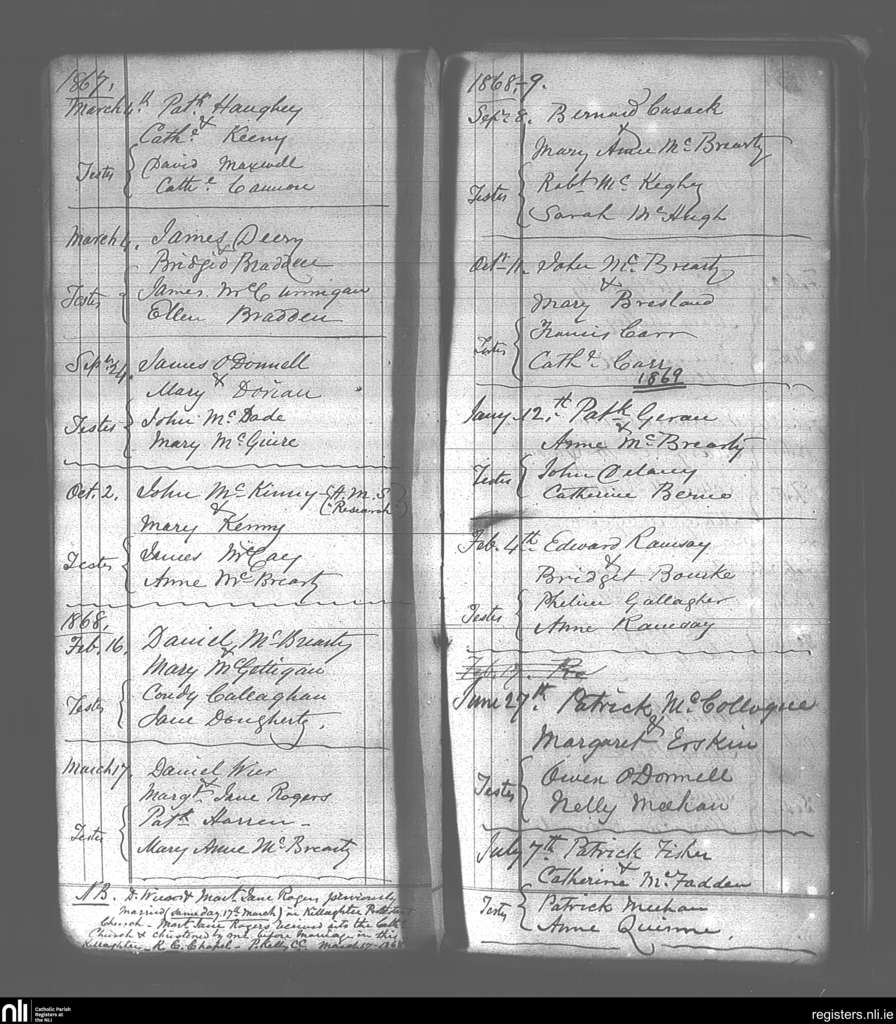 1867.
March 4th Patk Haughey
&
Cathe Keeny
Testes { David Maxwell
Cathe Cannon
March 4. James Deery
&
Bridgid Bradden
Testes { James McCunnigan
Ellen Bradden
Sepbr 24. James O'Donnell
&
Mary Dorian
Testes { John McDade
Mary McGuire
Oct. 2. John McKinny (H. M. S
Research)
&
Mary Kenny
Testes { James McCay
Anne McBrearty
1868.
Feb. 16. Daniel McBrearty
&
Mary McGettigan
Testes { Condy Callaghan
Jane Dougherty.
March 17. Daniel Wier
&
Margt Jane Rogers
Testes { Patk Harren
Mary Anne McBrearty
NB. D. Wier & Mart Jane Rogers previously
married (same day, 17th March) in Killaghtee
Church - Mart Jane Rogers received into the Cath
Church & christened by me before marriage in this
Killaghtee R. C. Chapel - P. Kelly CC March 17
1868-9.
Sept 28. Bernard Cusack
&
Mary Anne McBrearty
Testes { Robt McKeghy
Sarah McHugh
Octr 11. John McBrearty
&
Mary Bresland
Testes { Francis Carr
Cathe Carr
1869
Jany. 12.th Patk Geran
&
Anne McBrearty
Testes { John Delaney
Catherine Berne
Feb. 4th Edward Ramsay
&
Bridget Bourke
Testes { Phelim Gallagher
Anne Ramsay
Feb. 17.
June 27th. Patrick McCollogue
&
Margaret Erskin
Testes { Owen O'Donnell
Nelly Meehan
July 7th Patrick Fisher
&
Catherine McFadden
Testes { Patrick Meehan
Anne Quinne.
nli Catholic Parish
Registers at
the NLI
registers.nli.ie